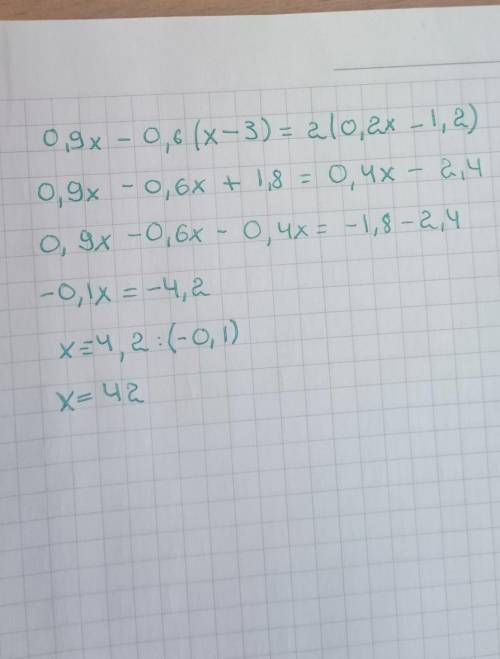 0,9x - 0,6(x-3) = 2(0,2x - 1,2)
0,9x - 0,6x + 1,8 = 0,4x - 2,4
0,9x - 0,6x - 0,4x = -1,8 - 2,4
-0,1x = -4,2
x = 4,2 : (-0,1)
x = 42